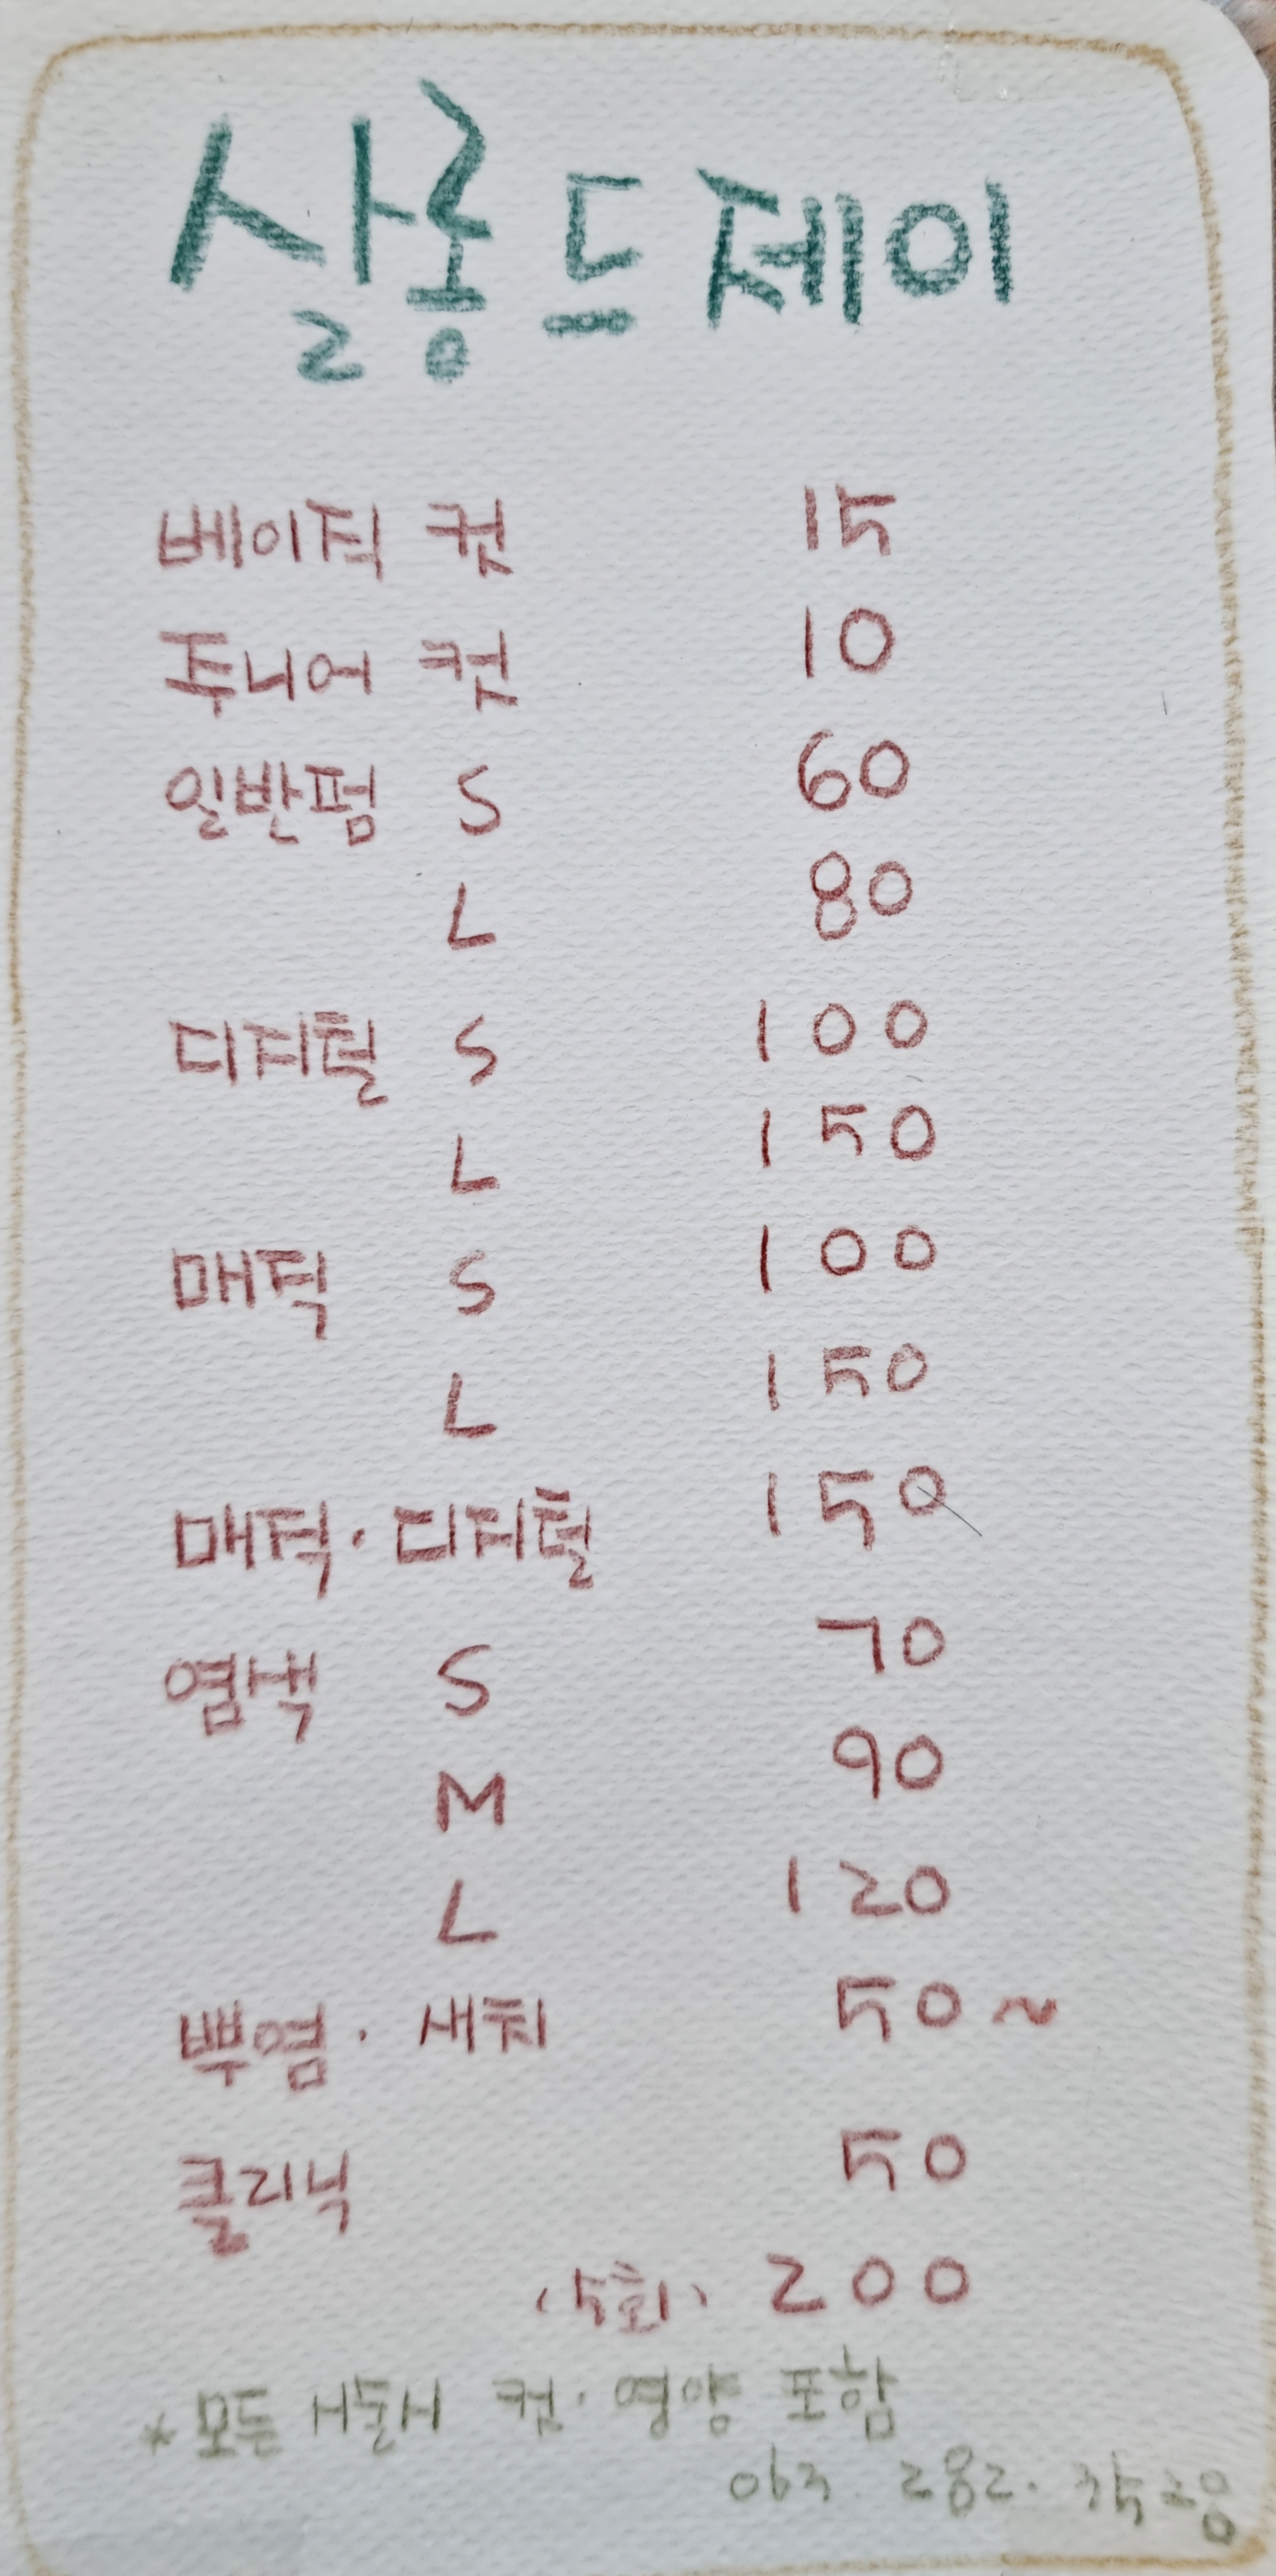 살롱드제이
베이직 컷 15
주니어 컷 10
일반펌 S 60
L 80
디지털 S 100
L 150
매직 S 100
L 150
매직·디지털 150
염색 S 70
M 90
L 120
뿌염·새치 50~
클리닉 50
(5회) 200
*모든 시술시 컷·영양 포함
063. 282.